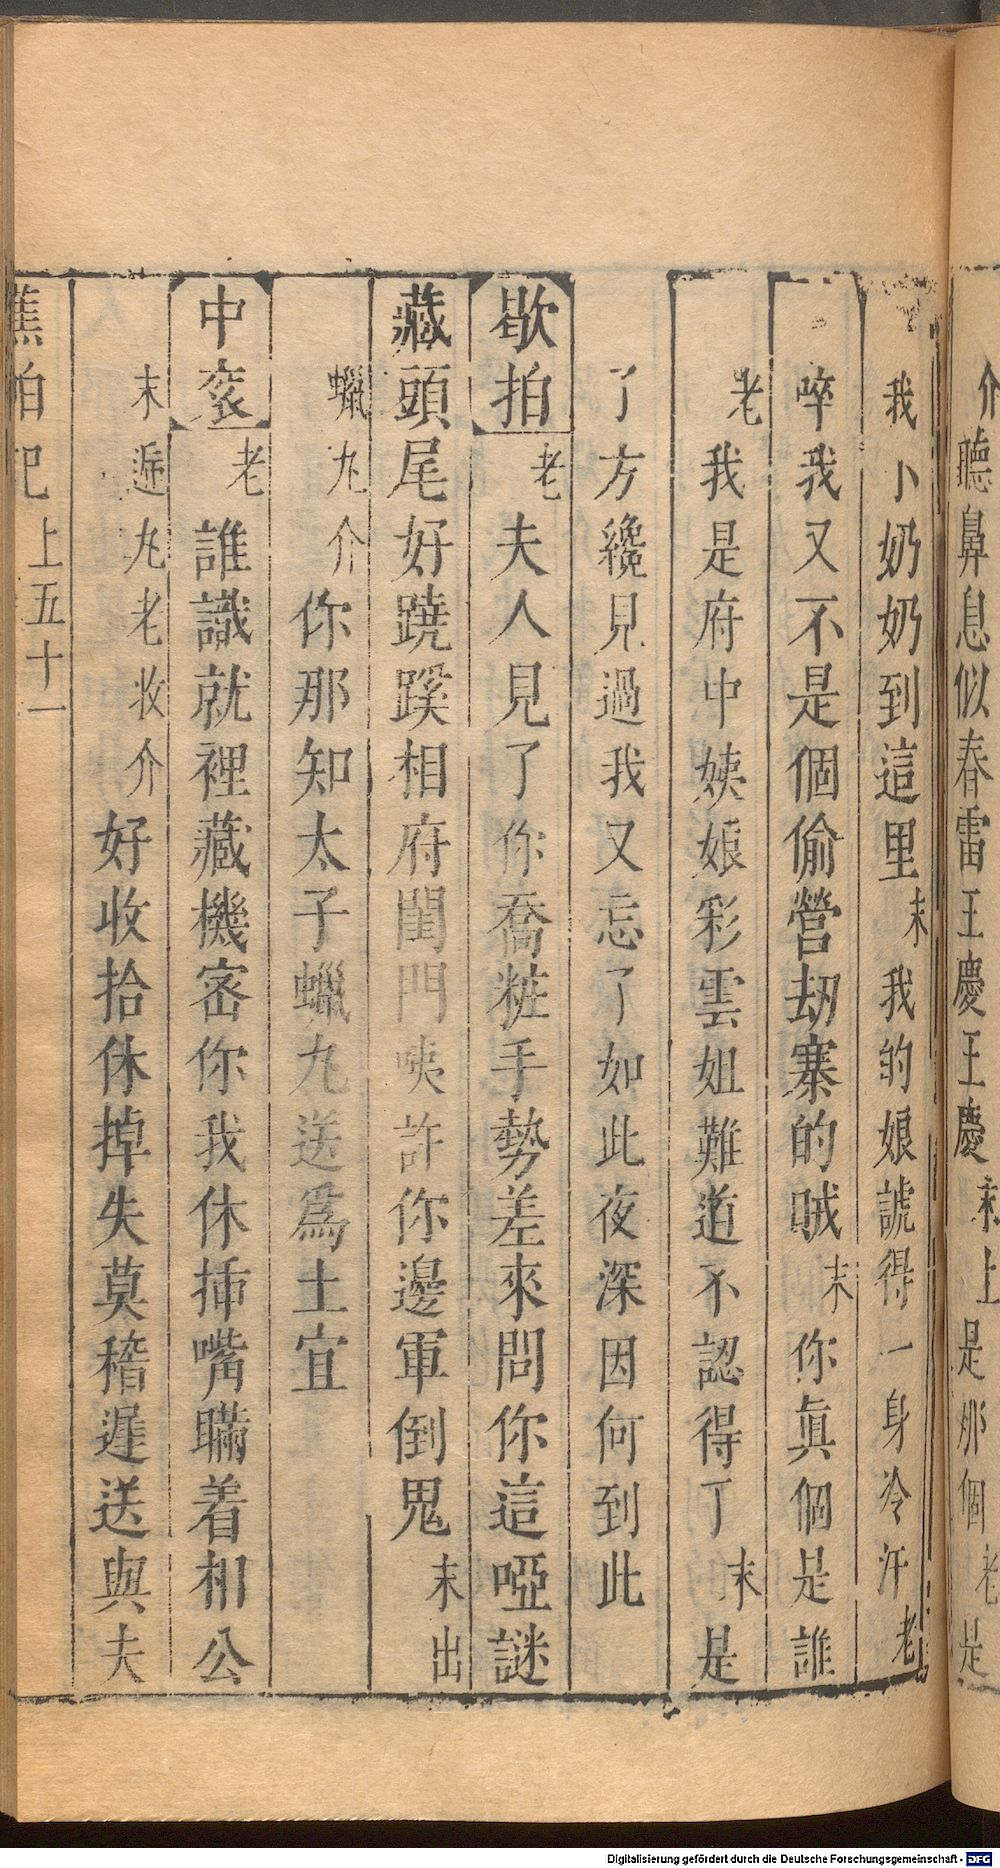 介聽鼻息似春雷王慶王慶末上是那個老是
我小奶奶到這里末我的娘諕得一身冷汗老
啐我又不是個偷營刼寨的賊末你眞個是誰
老我是府中姨娘彩雲姐難道不認得了末是
了方纔見過我又忘了如此夜深因何到此
歇拍老夫人見了你喬粧手勢差來問你這啞謎
藏頭尾好蹺蹊相府閨門咦許你邊軍倒鬼末出
蠟丸介你那知太子蠟丸送爲土宜
中衮老誰識就裡藏機密你我休揷嘴瞞着相公
末遞丸老收介好收拾休掉失莫稽遲送與夫
蕉帕記上五十一
Digitalisierung gefördert durch die Deutsche Forschungsgemeinschaft - DFG